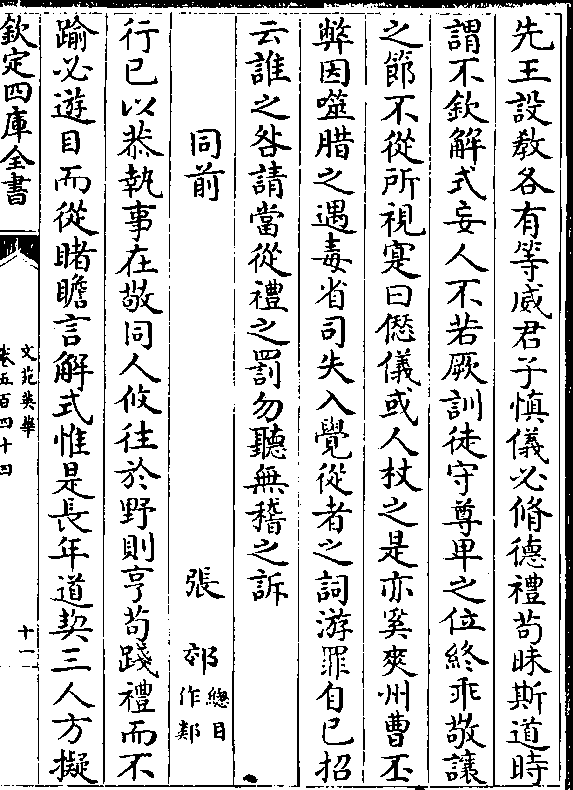 先王設教各有等威君子慎儀必脩德禮苟昧斯道時
謂不欽解式妄人不若厥訓徒守尊卑之位終乖敬讓
之節不從所視寔曰愆儀或人杖之是亦奚爽州曹丕
弊因噬腊之遇毒省司失入覺從者之詞游罪自已招
云誰之咎請當從禮之罰勿聽無稽之訴
同前 張邠總目作鄰
行已以恭執事在敬同人攸往於野則亨苟踐禮而不
踰必遊目而從睹瞻言解式惟是長年道契三人方擬
欽定四庫全書
文苑英華
卷五百四十四
十一